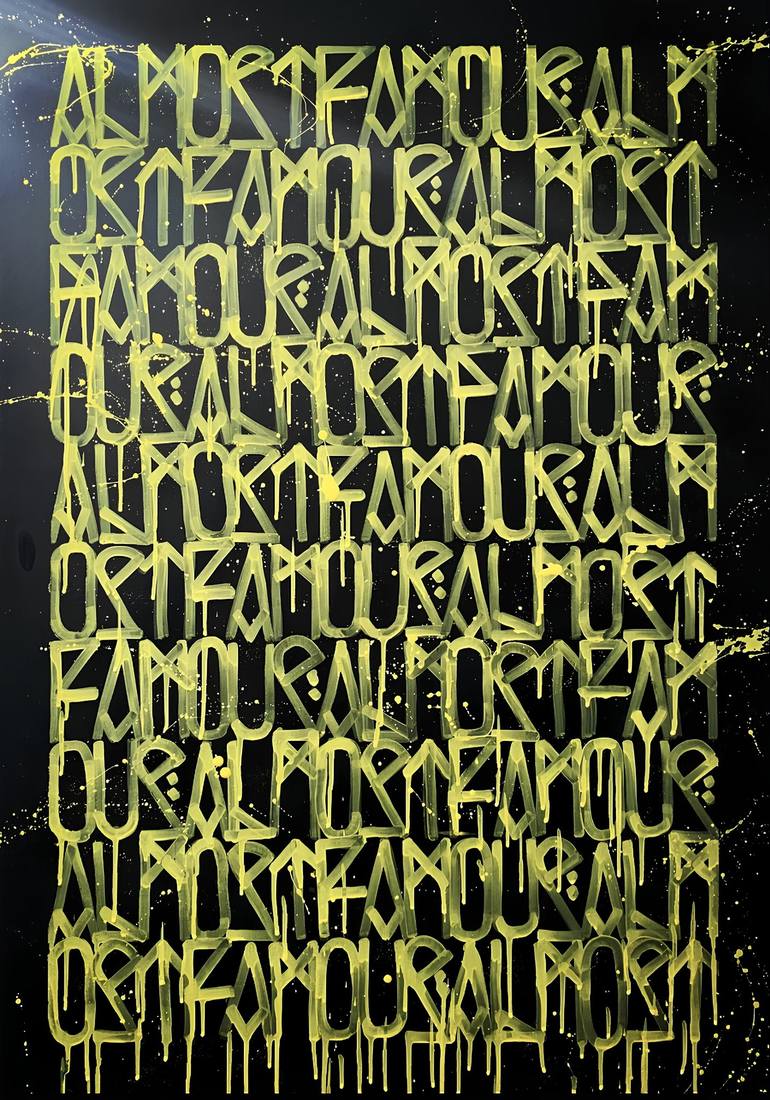 ALMOSTFAMOUSALM
OSTFAMOUSALMOST
FAMOUSALMOSTFAM
OUSALMOSTFAMOUS
ALMOSTFAMOUSALM
OSTFAMOUSALMOST
FAMOUSALMOSTFAM
OUSALMOSTFAMOUS
ALMOSTFAMOUSALM
OSTFAMOUSALMOST